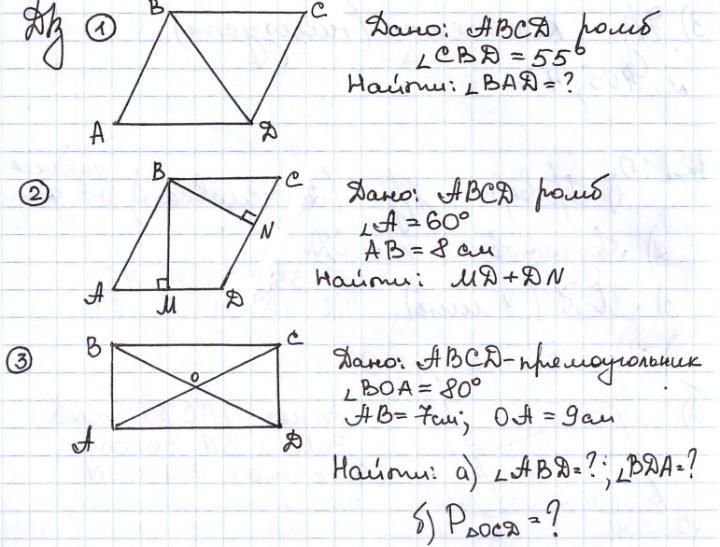 Дз ① B C Дано: ABCD ромб
∠CBD = 55°
A D Найти: ∠BAD = ?
② B C Дано: ABCD ромб
∠A = 60°
N AB = 8 см
A M D Найти: MD + DN
③ B C Дано: ABCD - прямоугольник
O ∠BOA = 80°
AB = 7см; OA = 9см
A D
Найти: а) ∠ABD = ?; ∠BDA = ?
б) P△OCD = ?